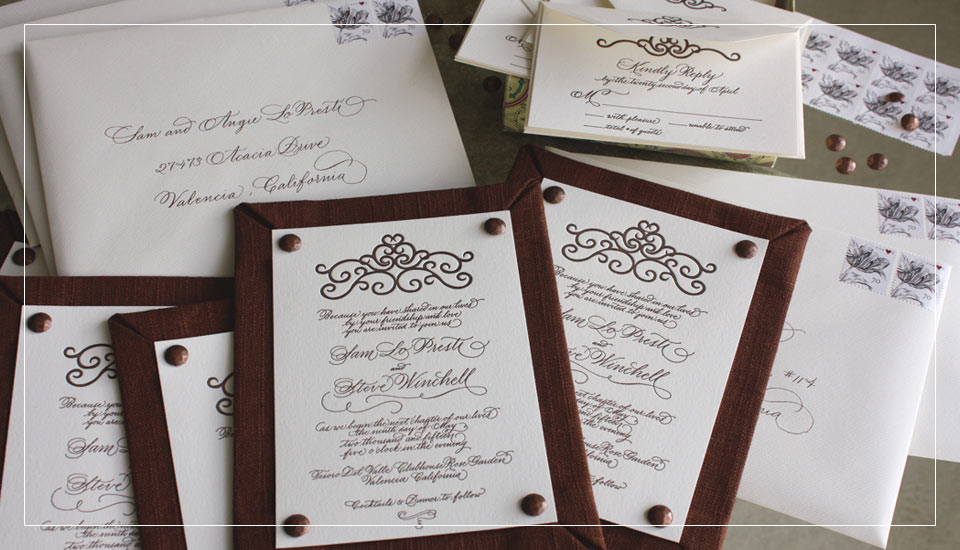 Sam and Angie Lo Presti
27473 Acacia Drive
Valencia, California
70
Kindly Reply
by the twenty second day of April
M
with pleasure unable to attend
total # of guests
70
70
Because you have shared in our lives
by your friendship and love
you are invited to join us
Sam Lo Presti
and
Steve Winchell
as we begin the next chapter of our lives
the ninth day of May
two thousand and fifteen
five o'clock in the evening
Tesoro Del Valle Clubhouse Rose Garden
Valencia California
Cocktails & Dinner to follow
Because you have shared in our lives
by your friendship and love
you are invited to join us
Sam Lo Presti
and
Steve Winchell
as we begin the next chapter of our lives
the ninth day of May
two thousand and fifteen
five o'clock in the evening
Clubhouse Rose Garden
California
to follow
#114
Because you
by your
you are
Sam
Steve
as we begin
the
two
five
Tesoro Del